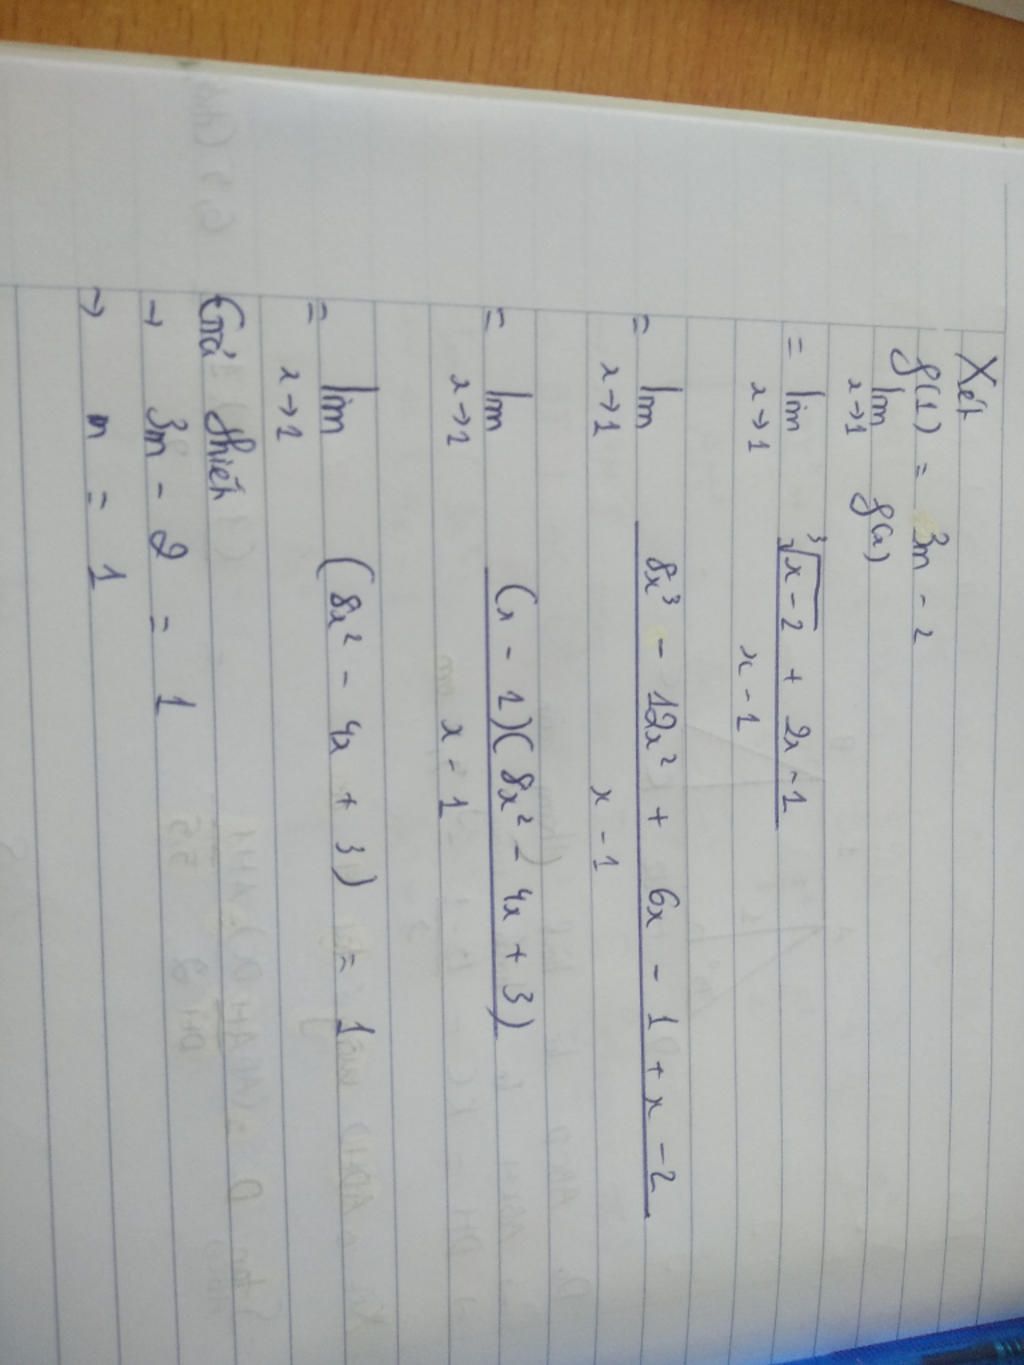 Xét
f(1) = 3m - 2
lim f(x)
x→1
= lim ∛x-2 + 2x - 1
x→1 x - 1
= lim 8x³ - 12x² + 6x - 1 + x - 2
x→1 x - 1
= lim (x - 1)(8x² - 4x + 3)
x→1 x - 1
= lim (8x² - 4x + 3) = 1
x→1
Giả thiết
→ 3m - 2 = 1
→ m = 1